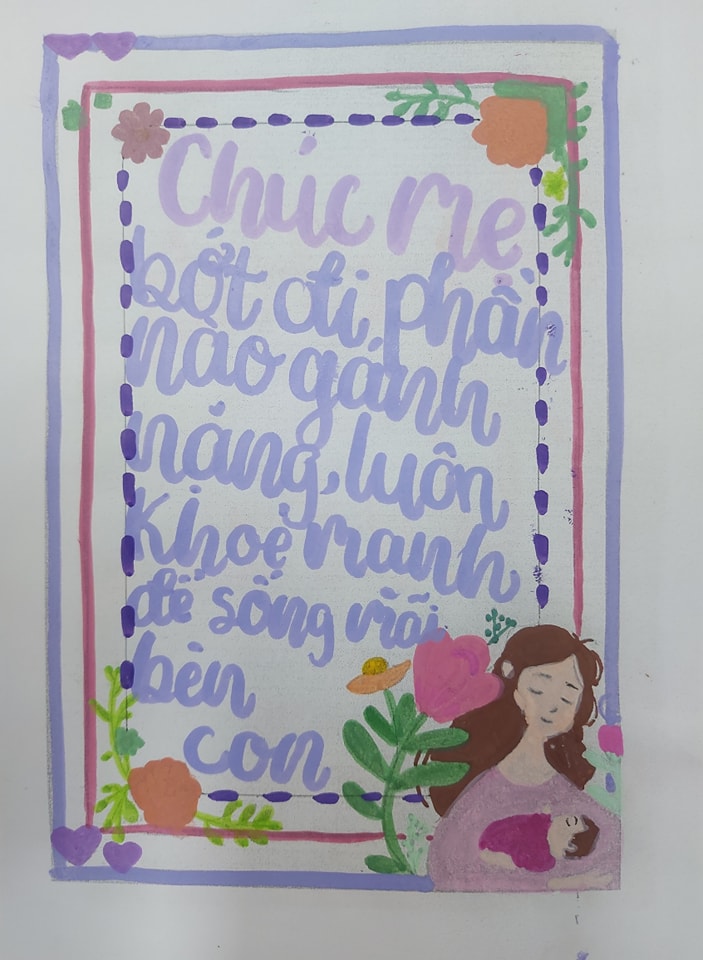 Chúc mẹ
bớt đi phần
nào gánh
nặng, luôn
Khoẻ mạnh
để sống mãi
bên
con